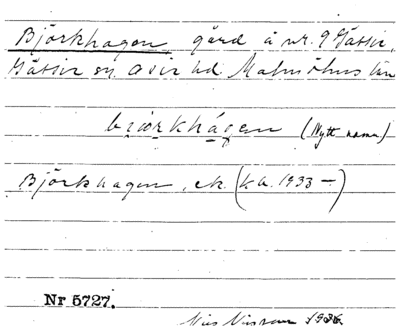 Björkhagen, gård å nr. 9 Gässie,
Gässie sn, Oxie hd. Malmöhus län
bjørkhágen (Nytt namn)
Björkhagen, ek. (KA. 1933 —)
Nr 5727.
Nils Nilsson 1936.